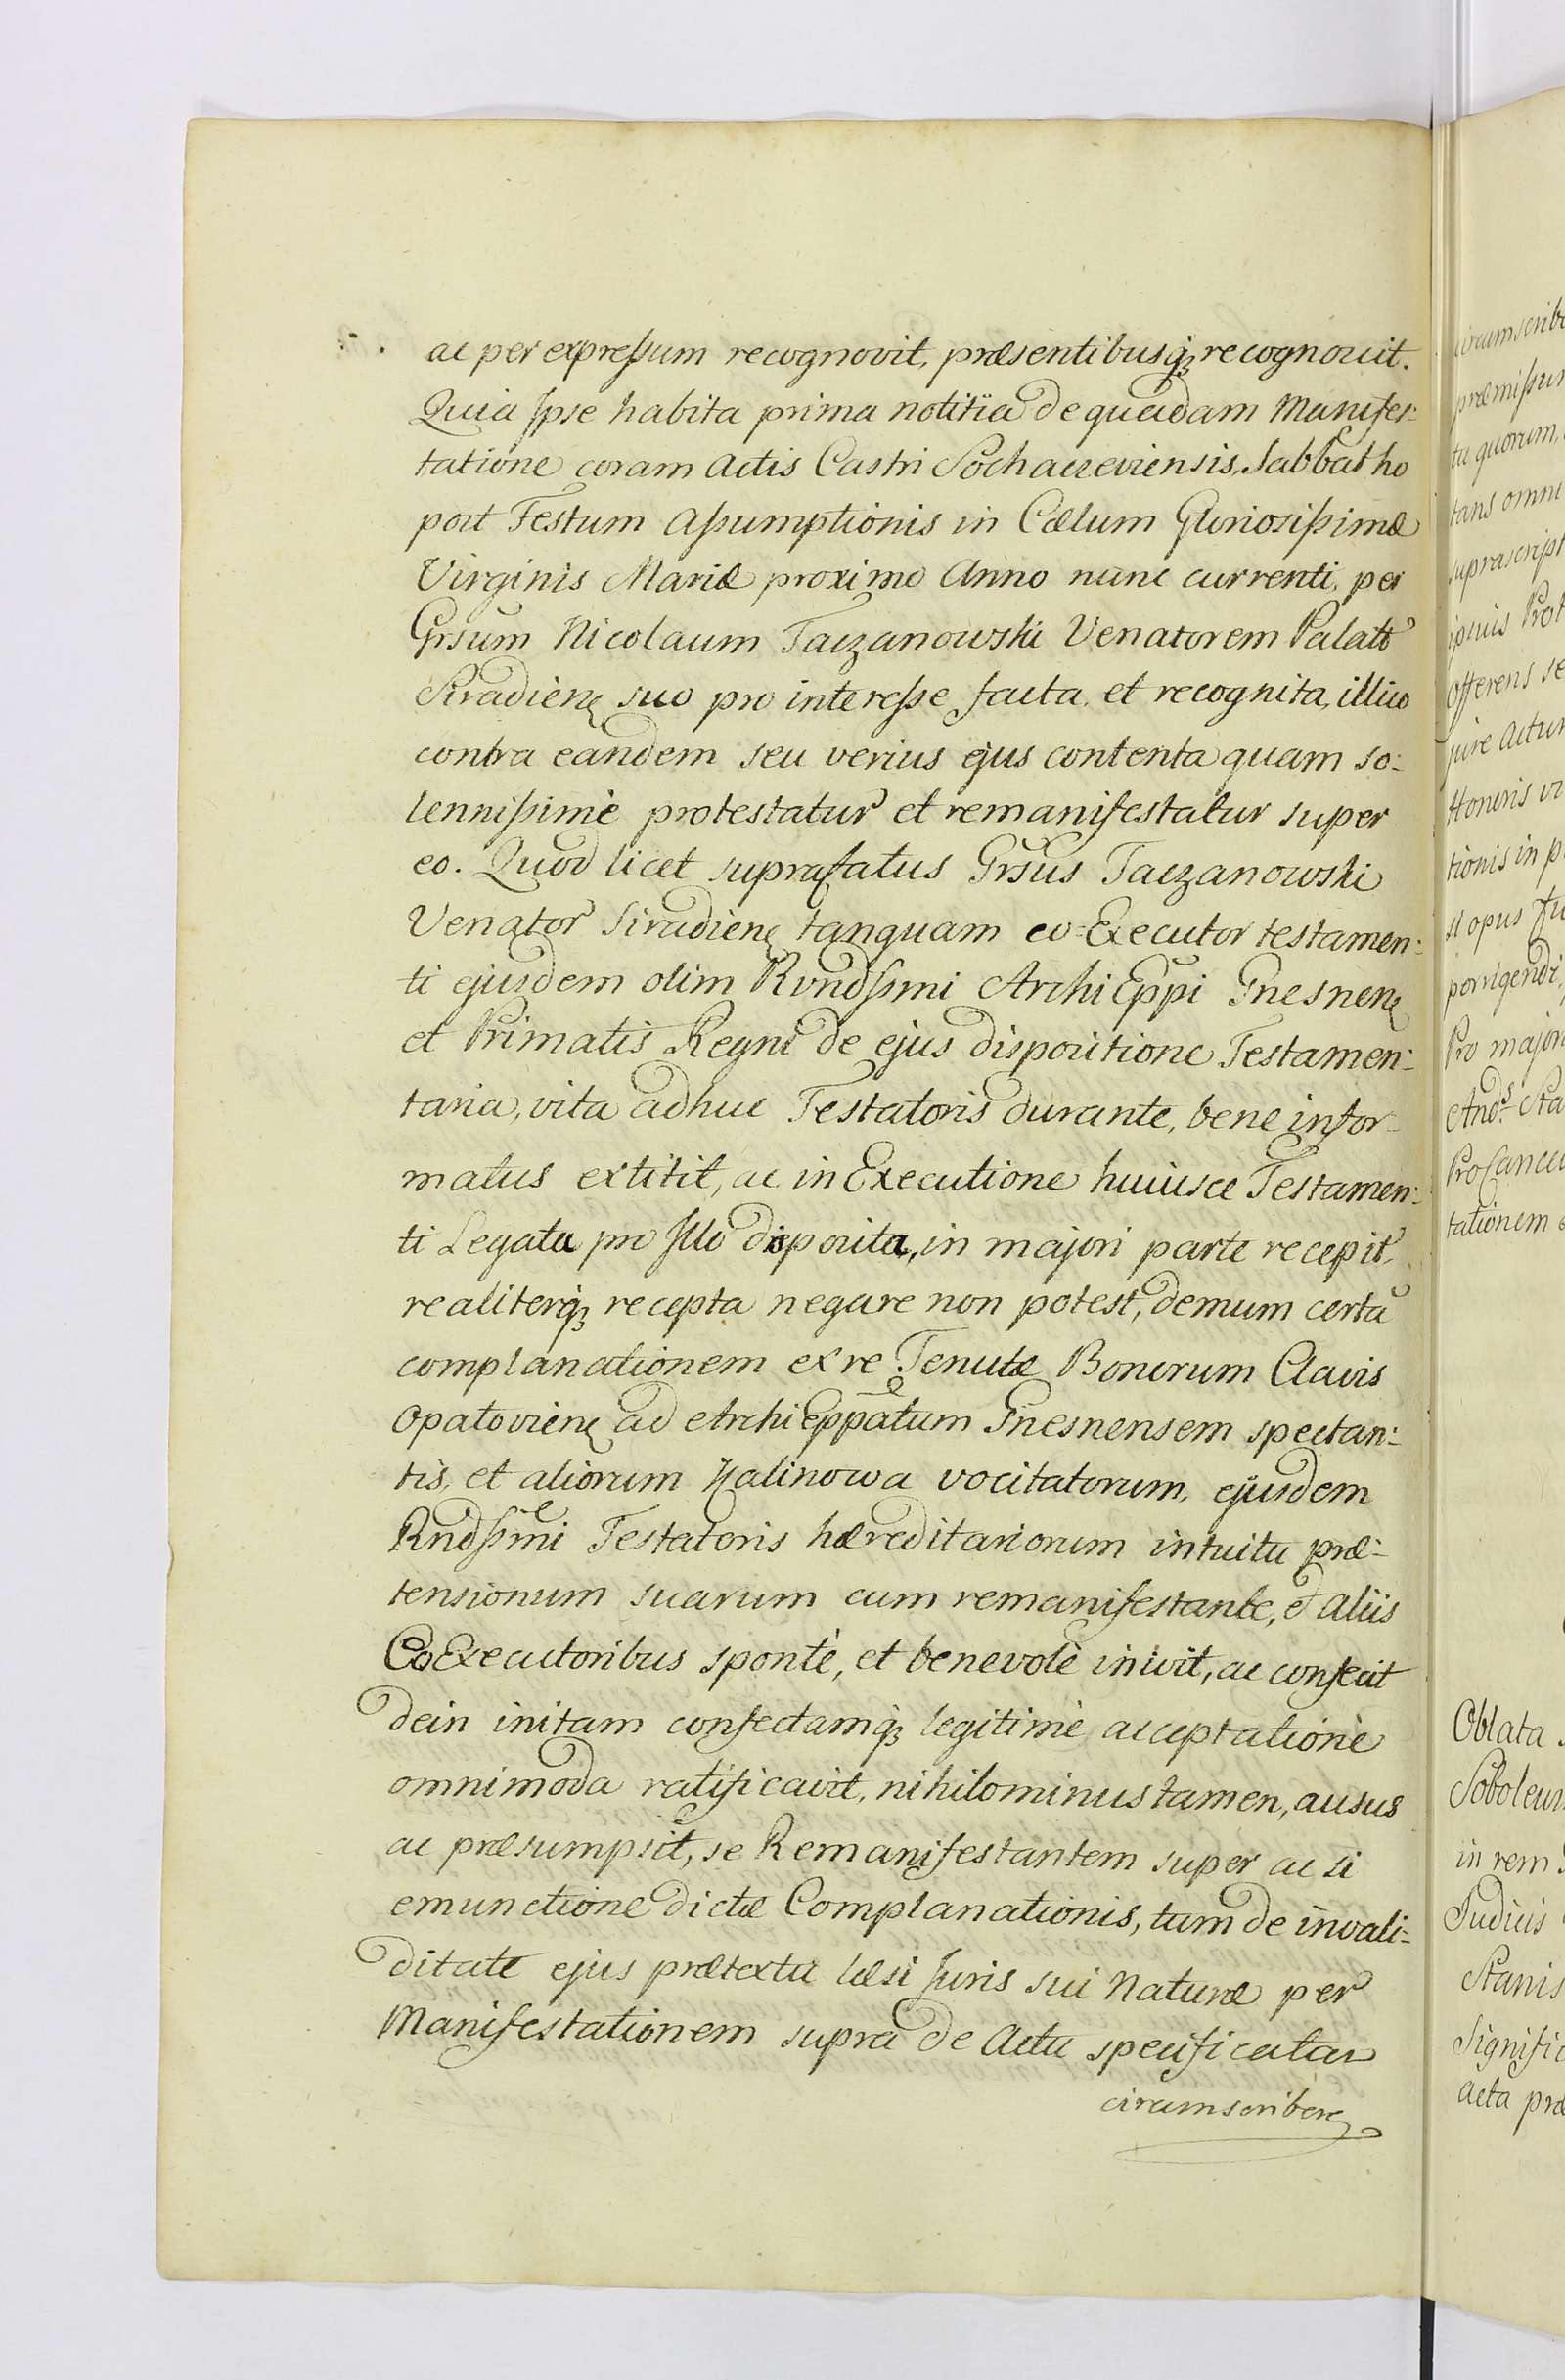 ac per expreſsum recognovit, præsentibusq3 recognouit.
Quia Ipse habita prima notitia de quadam Manifes:
tatione coram Actis Castri Sochaczeviensis, Sabbatho
post Festum Aſsumptionis in Cælum Gloriosiſsimæ
Virginis Mariæ proximo Anno nunc currenti, per
Grsum Nicolaum Taczanowski Venatorem Palatt
Siradieñ suo pro intereſse facta et recognita, illico
contra eandem seu verius ejus contenta quam so:
lenniſsimè protestatur et remanifestatur super
eo. Quod licet suprafatus Grsus Taczanowski
Venator Siradieñ tanquam co=Executor testamen:
ti ejusdem olim Rvndſsmi ArchiEppi Gnesneñ
et Primatis Regni de ejus dispositione Testamen:
taria, vita adhuc Testatoris durante, bene infor-
matus extitit, ac in Executione huiusce Testamen:
ti Legata pro Illo disposita, in majori parte recepit,
realiterq3 recepta negare non potest, demum certã
complanationem ex re Tenutæ Bonorum Clavis
Opatovieñ ad ArchiEppatum Gnesnensem spectan:
tis, et aliorum Kalinowa vocitatorum, ejusdem
Rndſsmi Testatoris hæreditariorum intuitu præ:
tensionum suarum cum remanifestante, et aliis
CoExecutoribus spontè, et benevolè inivit, ac confecit
dein initam confectamq3 legitimè acceptatione
omnimoda ratificavit, nihilominus tamen, ausus
ac præsumpsit, se Remanifestantem super ac si
emunctione dictæ Complanationis, tum de invali:
ditate ejus prætextu læsi Juris sui Naturæ per
Manifestationem supra de Actu specificatam
circumscribere
circumscribe
præmiſsu
ta quorum,
tans omni
suprascript
ipsius Prot
Offerens se
jure Actu
Honoris
tionis in p
si opus fu
porrigendi,
Pro majori
Ands. Sta
ProCancel
tationem
Oblata
Sobolew
in rem
Judicis
Stanis
Signific
Acta præ